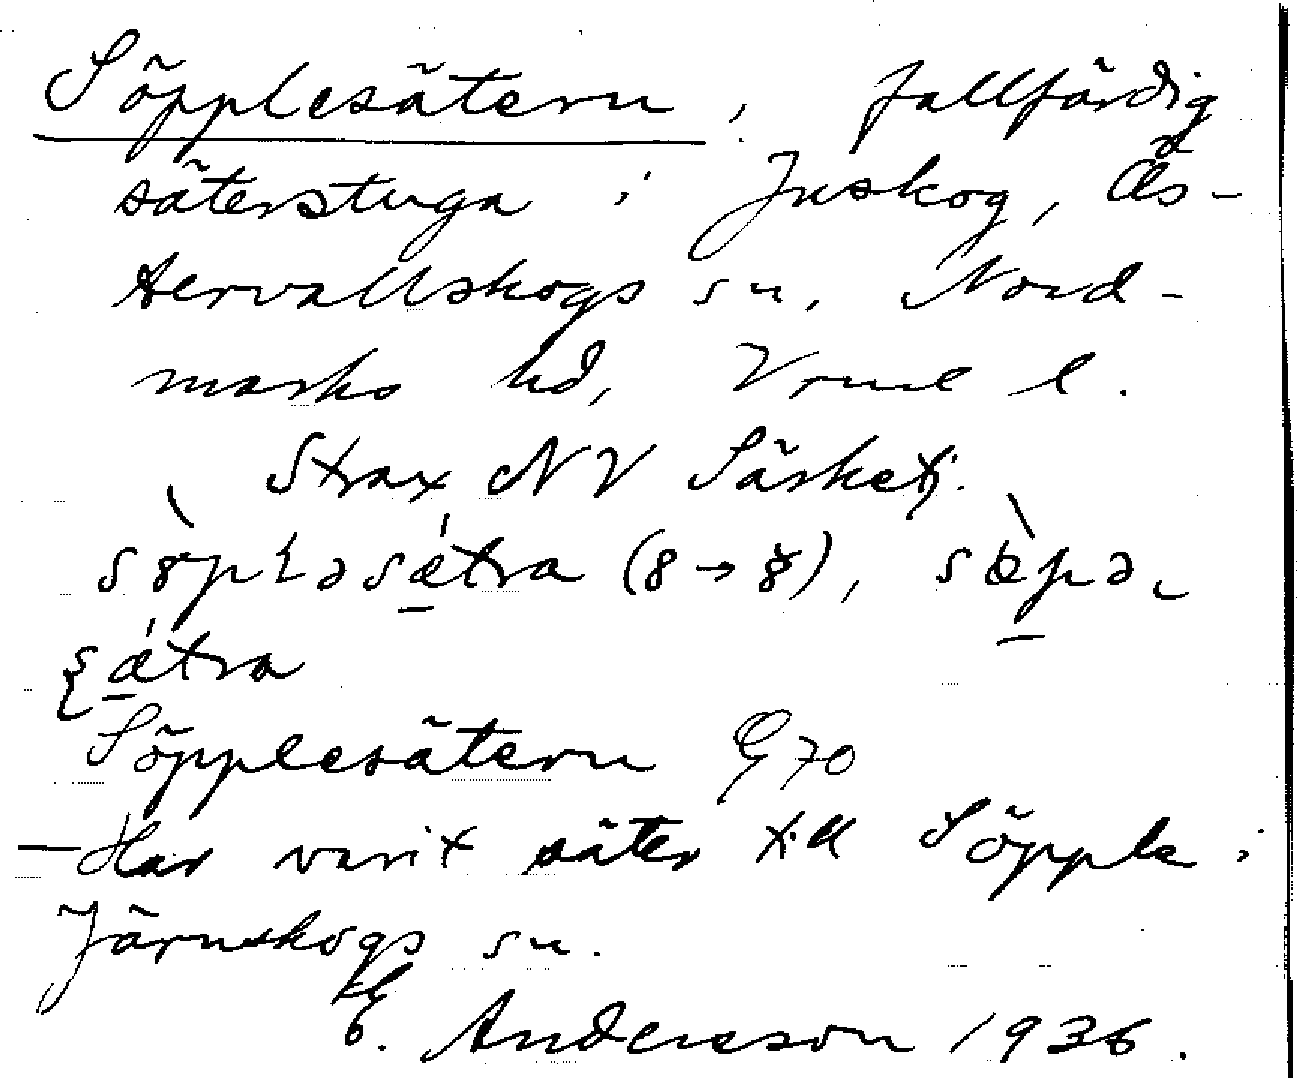 Söpplesätern, fallfärdig
säterstuga i Juskog, Ös-
tervallskogs sn, Nord-
marks hd, Vrml l.
Strax NV Särketj.
(8 → 8̌),
Söpplesätern E 70
—Har varit säter till Söpple i
Järnskogs sn.
E. Andersson 1936.